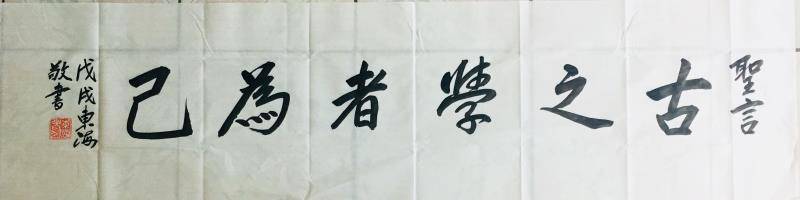 聖言
古之學者為己
戊戌東海
敬書